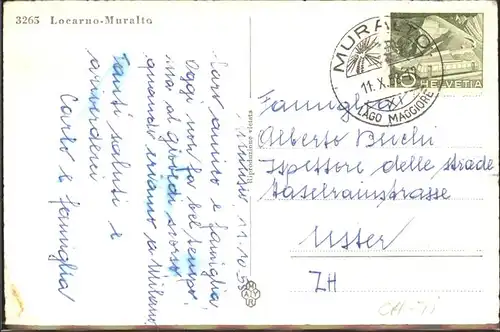 3265 Locarno-Muralto
Muralto, 11.10.53
Caro amico e famiglia,
Oggi non fa bel tempo,
ma al giovedì scorso
quando eravamo a Milano.
Tanti saluti e
arrivederci
Carlo e famiglia
Riproduzione vietata
MURALTO
11.X.
LAGO MAGGIORE
10
HELVETIA
Famiglia
Alberto Büchi
Ispettore delle strade
Haselrainstrasse
Uster
ZH
CH-TI